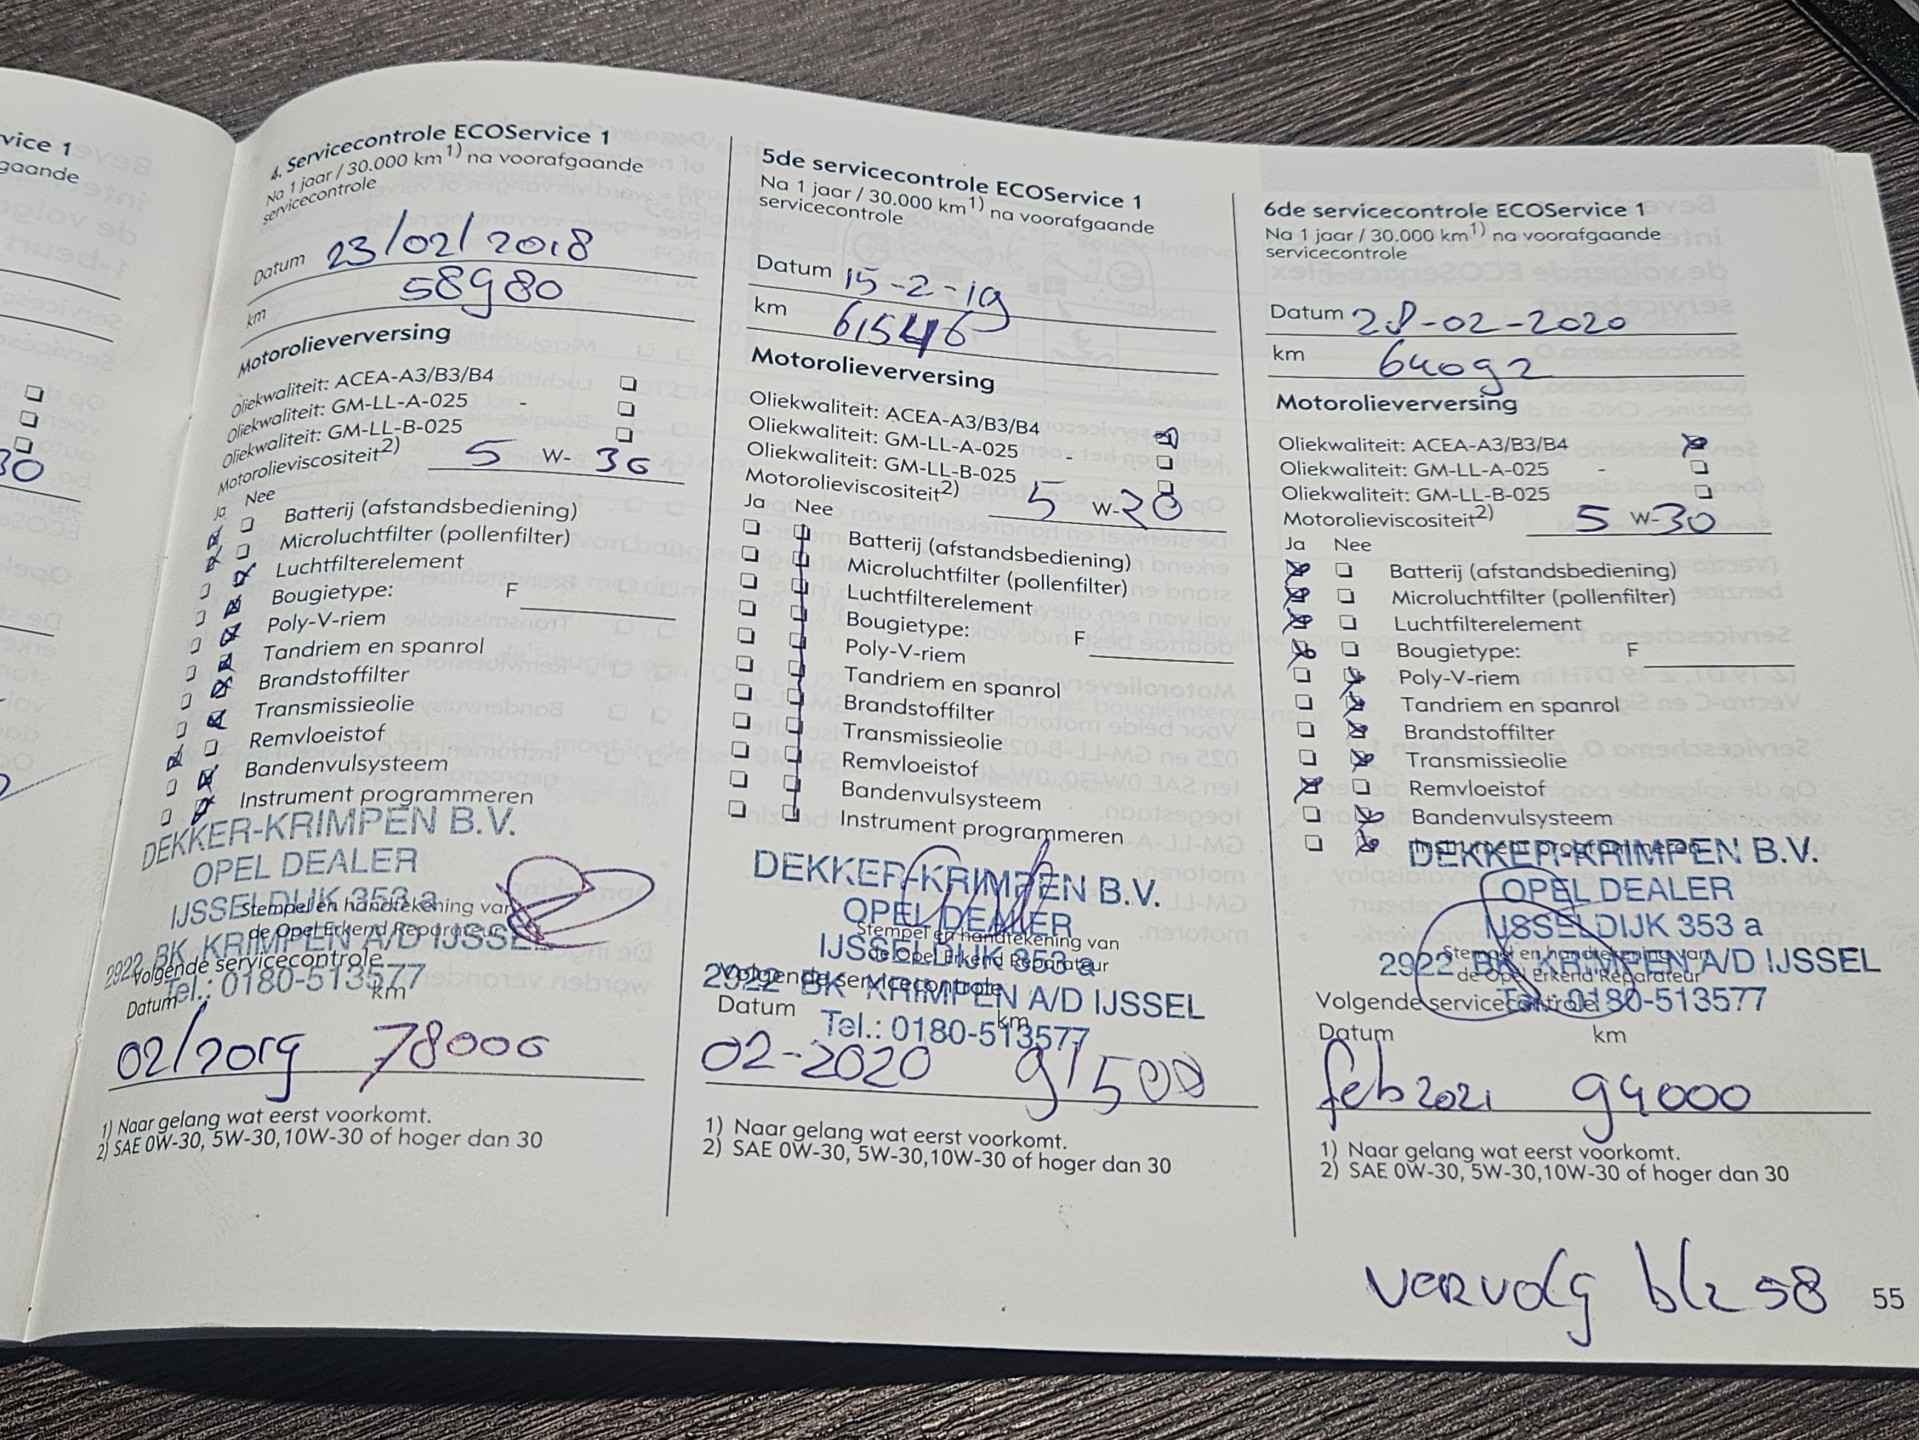 vice 1
gaande
30
4. Servicecontrole ECOService 1
Na 1 jaar / 30.000 km1) na voorafgaande
servicecontrole
Datum 23/02/2018
km 58980
Motorolieverversing
Oliekwaliteit: ACEA-A3/B3/B4
Oliekwaliteit: GM-LL-A-025 -
Oliekwaliteit: GM-LL-B-025
Motorolieviscositeit2) 5 W- 30
Ja Nee
Batterij (afstandsbediening)
Microluchtfilter (pollenfilter)
Luchtfilterelement
Bougietype: F
Poly-V-riem
Tandriem en spanrol
Brandstoffilter
Transmissieolie
Remvloeistof
Bandenvulsysteem
Instrument programmeren
DEKKER-KRIMPEN B.V.
OPEL DEALER
IJSSELDIJK 353 a
Stempel en handtekening van
de Opel Erkend Reparateur
2922 BK KRIMPEN A/D IJSSEL
Volgende servicecontrole
Tel.: 0180-513577
Datum km
02/2019 78000
1) Naar gelang wat eerst voorkomt.
2) SAE 0W-30, 5W-30,10W-30 of hoger dan 30
5de servicecontrole ECOService 1
Na 1 jaar / 30.000 km1) na voorafgaande
servicecontrole
Datum 15-2-19
km 61546
Motorolieverversing
Oliekwaliteit: ACEA-A3/B3/B4
Oliekwaliteit: GM-LL-A-025 -
Oliekwaliteit: GM-LL-B-025
Motorolieviscositeit2) 5 W-20
Ja Nee
Batterij (afstandsbediening)
Microluchtfilter (pollenfilter)
Luchtfilterelement
Bougietype: F
Poly-V-riem
Tandriem en spanrol
Brandstoffilter
Transmissieolie
Remvloeistof
Bandenvulsysteem
Instrument programmeren
DEKKER-KRIMPEN B.V.
OPEL DEALER
Stempel en handtekening van
IJSSELDIJK 353 a
de Opel Erkend Reparateur
Volgende servicecontrole
2922 BK KRIMPEN A/D IJSSEL
Datum km
Tel.: 0180-513577
02-2020 91500
1) Naar gelang wat eerst voorkomt.
2) SAE 0W-30, 5W-30,10W-30 of hoger dan 30
6de servicecontrole ECOService 1
Na 1 jaar / 30.000 km1) na voorafgaande
servicecontrole
Datum 28-02-2020
km 64092
Motorolieverversing
Oliekwaliteit: ACEA-A3/B3/B4
Oliekwaliteit: GM-LL-A-025 -
Oliekwaliteit: GM-LL-B-025
Motorolieviscositeit2) 5 W-30
Ja Nee
Batterij (afstandsbediening)
Microluchtfilter (pollenfilter)
Luchtfilterelement
Bougietype: F
Poly-V-riem
Tandriem en spanrol
Brandstoffilter
Transmissieolie
Remvloeistof
Bandenvulsysteem
Instrument programmeren
DEKKER-KRIMPEN B.V.
OPEL DEALER
IJSSELDIJK 353 a
Stempel en handtekening van
2922 BK KRIMPEN A/D IJSSEL
de Opel Erkend Reparateur
Volgende servicecontrole
Tel.: 0180-513577
Datum km
feb 2021 94000
1) Naar gelang wat eerst voorkomt.
2) SAE 0W-30, 5W-30,10W-30 of hoger dan 30
vervolg blz 58
55